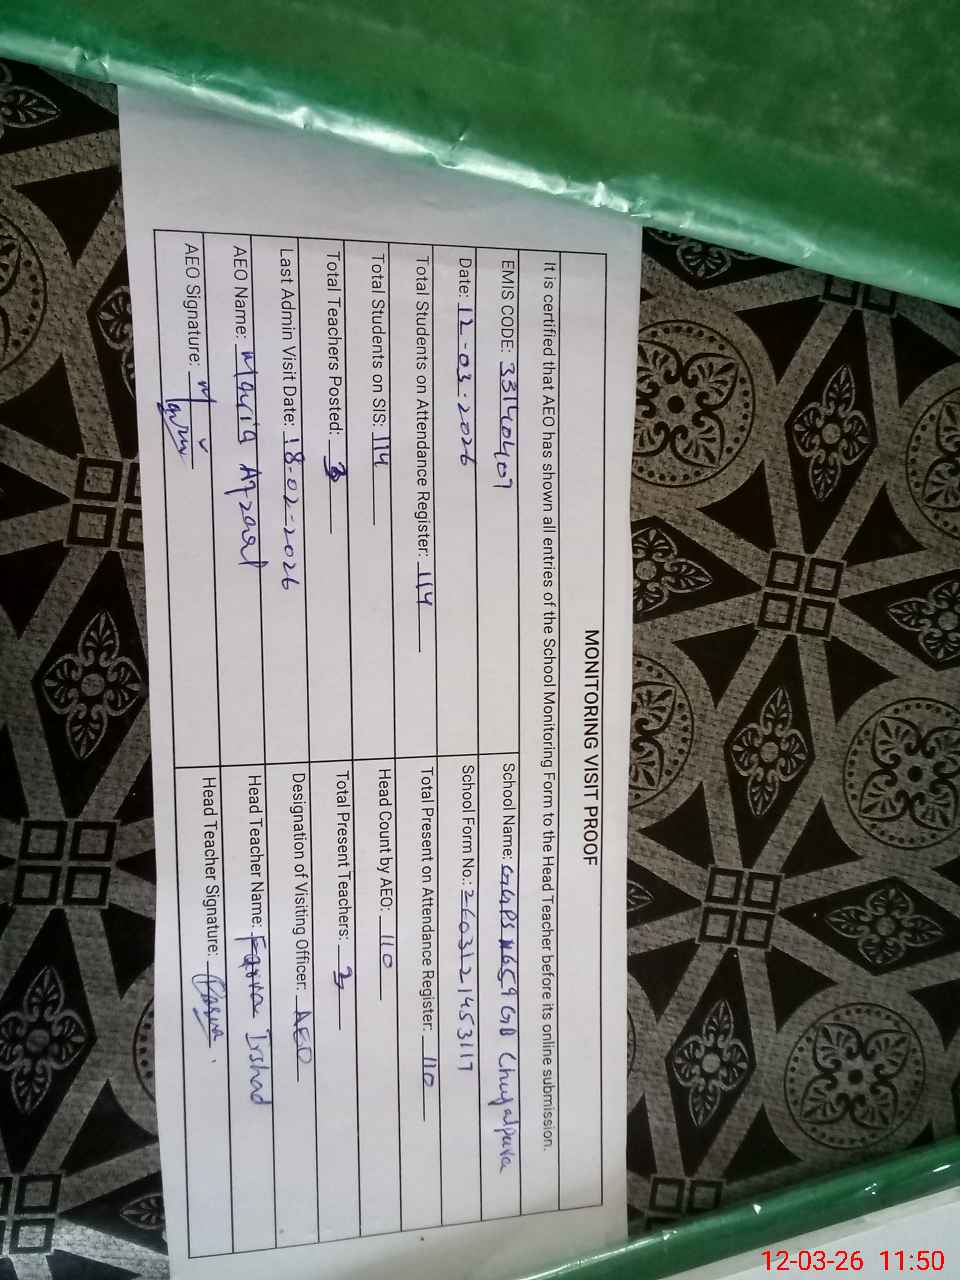 MONITORING VISIT PROOF
It is certified that AEO has shown all entries of the School Monitoring Form to the Head Teacher before its online submission.
EMIS CODE: 33140407
School Name: GGPS 659 GB Chugalpura
Date: 12-03-2026
School Form No.: 260312145 3117
Total Students on Attendance Register: 114
Total Present on Attendance Register: 110
Total Students on SIS: 114
Head Count by AEO: 110
Total Teachers Posted: 3
Total Present Teachers: 3
Last Admin Visit Date: 18-02-2026
Designation of Visiting Officer: AEO
AEO Name: Maria Afzaal
Head Teacher Name: Farwa Irshad
AEO Signature:
Head Teacher Signature:
12-03-26 11:50